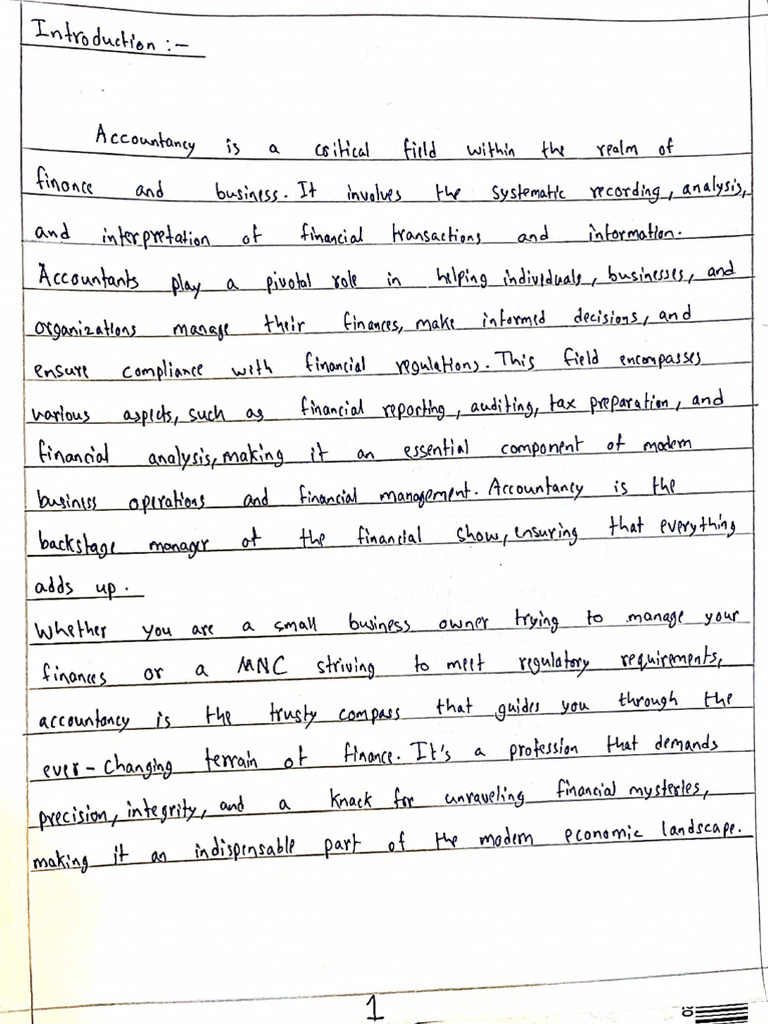 Introduction :-
Accountancy is a critical field within the realm of
finance and business. It involves the systematic recording, analysis,
and interpretation of financial transactions and information.
Accountants play a pivotal role in helping individuals, businesses, and
organizations manage their finances, make informed decisions, and
ensure compliance with financial regulations. This field encompasses
various aspects, such as financial reporting, auditing, tax preparation, and
financial analysis, making it an essential component of modern
business operations and financial management. Accountancy is the
backstage manager of the financial show, ensuring that everything
adds up.
Whether you are a small business owner trying to manage your
finances or a MNC striving to meet regulatory requirements,
accountancy is the trusty compass that guides you through the
ever-changing terrain of finance. It's a profession that demands
precision, integrity, and a knack for unraveling financial mysteries,
making it an indispensable part of the modern economic landscape.
1